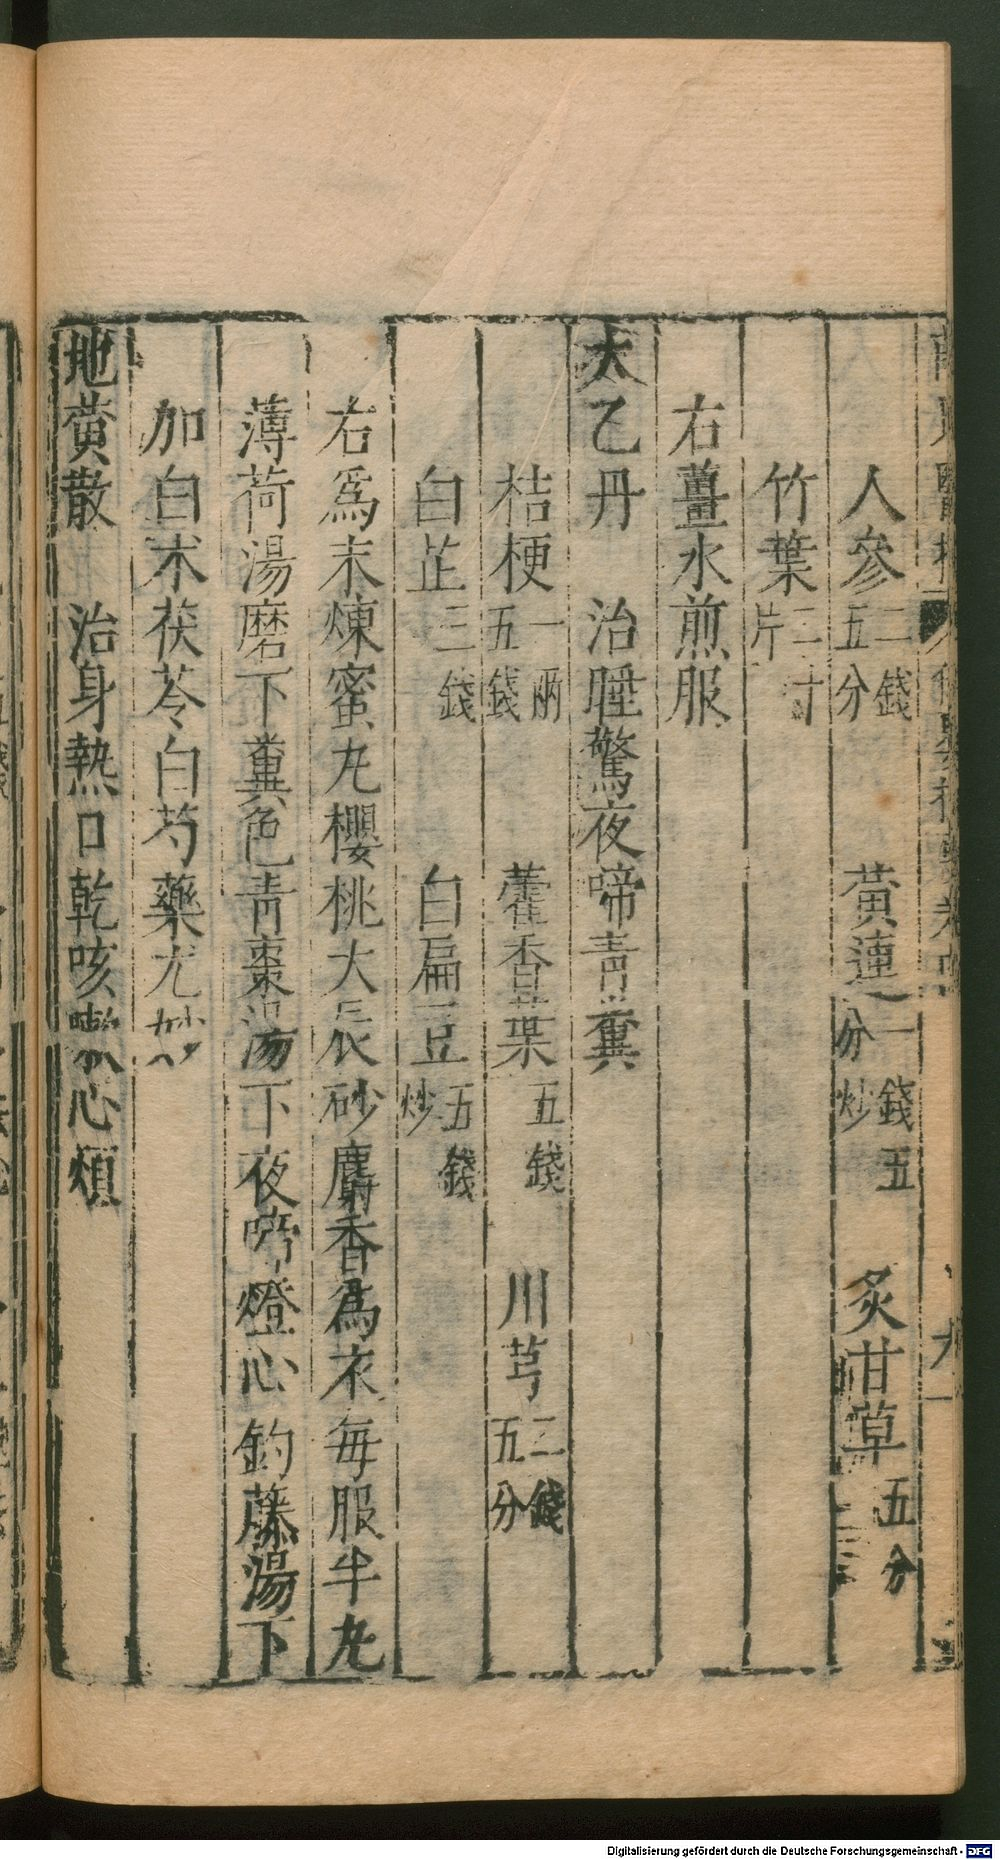 人參二錢五分 黃連一錢五分炒 炙甘草五分
竹葉二寸片
右薑水煎服
太乙丹 治睡驚夜啼青糞
桔梗一兩五錢 藿香葉五錢 川芎二錢五分
白芷三錢 白扁豆五錢炒
右爲末煉蜜丸櫻桃大辰砂麝香爲衣每服半丸
薄荷湯磨下糞色青棗湯下夜啼燈心釣藤湯下
加白朮茯苓白芍藥尤妙
地黃散 治身熱口乾咳嗽心煩
Digitalisierung gefördert durch die Deutsche Forschungsgemeinschaft - DFG